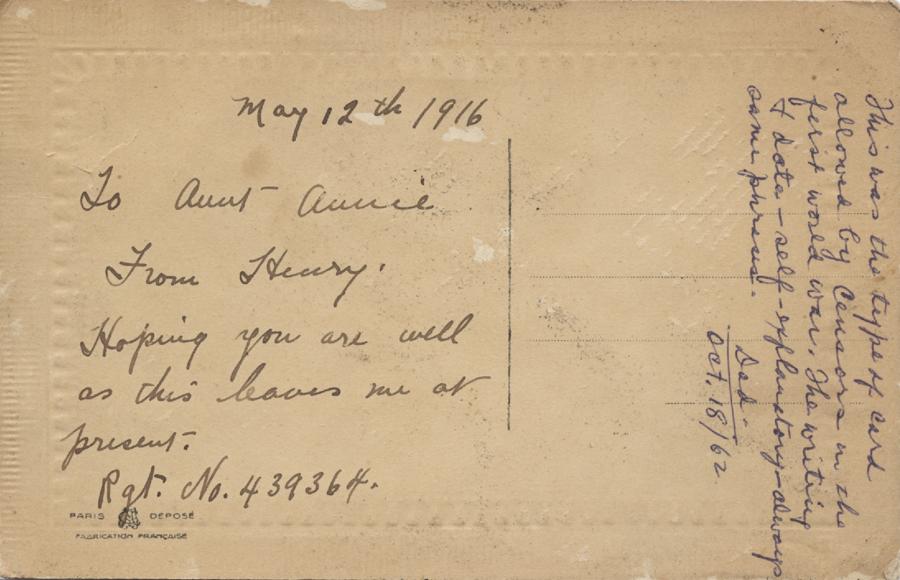 May 12th 1916
To Aunt Annie
From Henry.
Hoping you are well
as this leaves me at
present.
Rgt. No. 439364.
PARIS DEPOSÉ
FABRICATION FRANÇAISE
This was the type of card
allowed by Censors in the
first world war. The writing
& data - self-explanatory - always
same phrases.
Dad.
Oct. 18/62